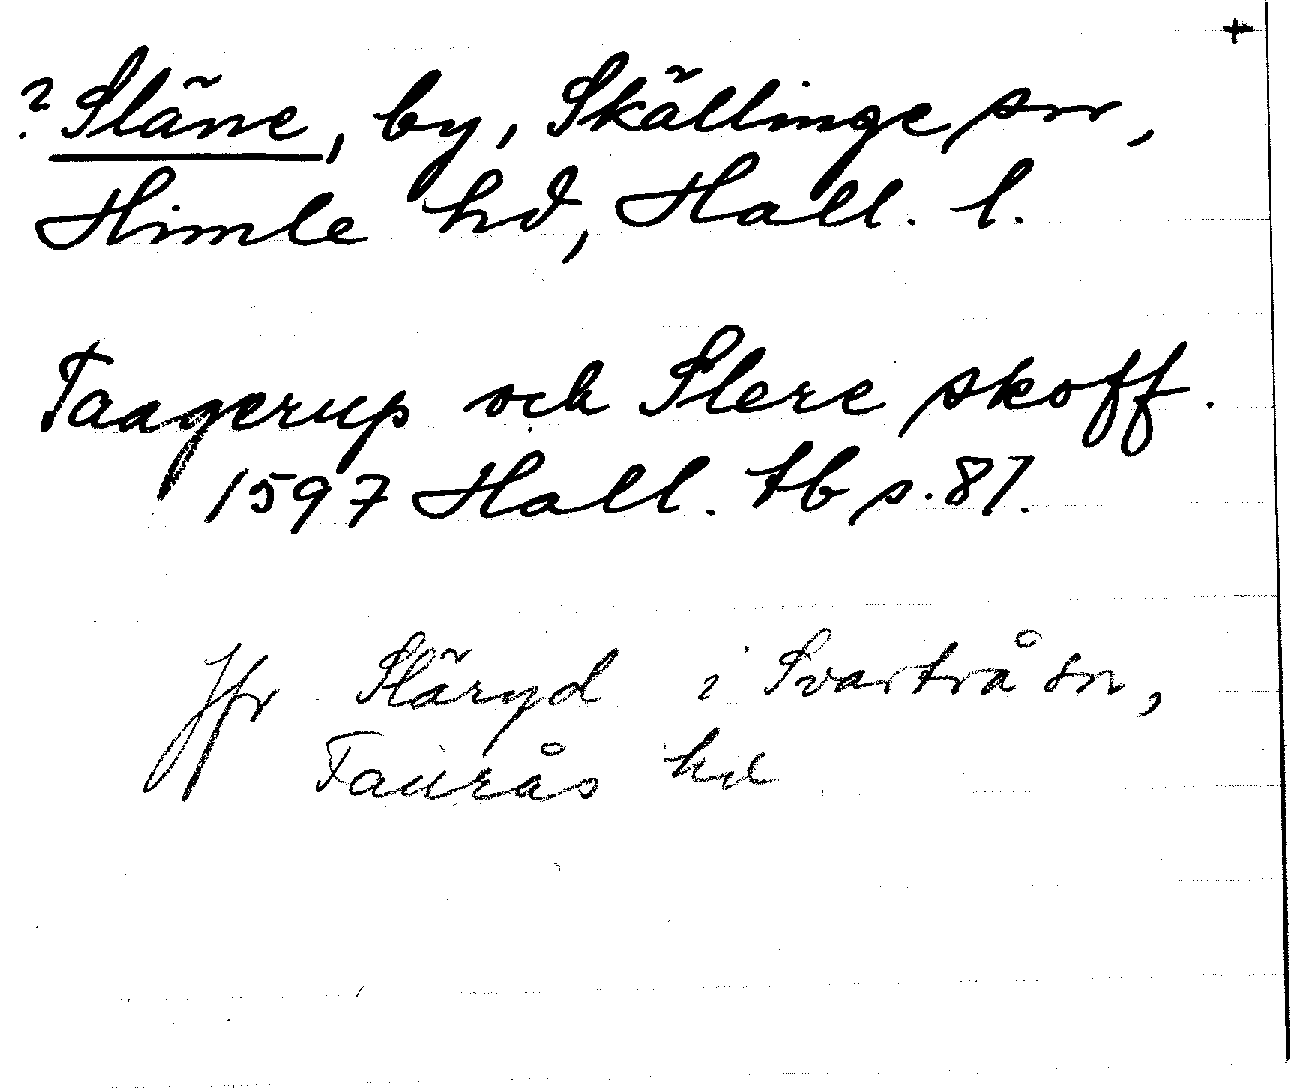 +
? Släne, by, Skällinge sn,
Himle hd, Hall. l.
Taagerup och Slere skoff.
1597 Hall. tb s. 87.
Jfr Släryd i Svartrå sn,
Faurås hd